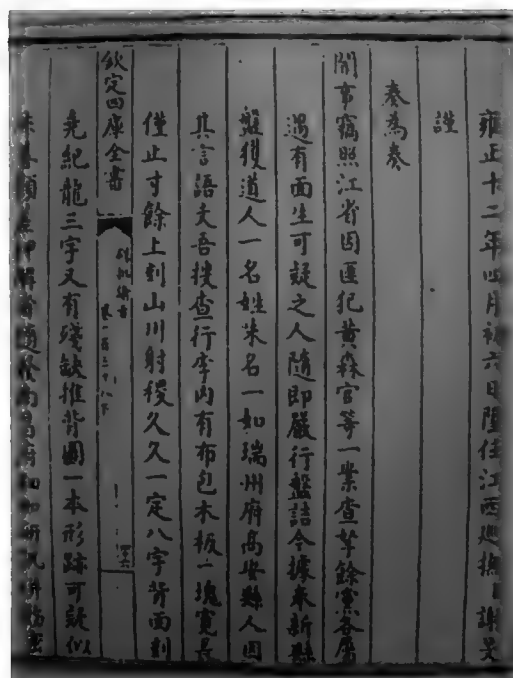 雍正十二年四月初六日陞任江西巡撫臣謝旻
謹
奏為奏
聞事竊照江省因匪犯黃森官等一案查拏餘黨各屬
遇有面生可疑之人隨即嚴行盤詰今據永新縣
盤獲道人一名姓朱名一如瑞州府高安縣人因
其言語支吾搜查行李內有布包木板一塊寬長
僅止寸餘上刻山川射稷久久一定八字背面刻
欽定四庫全書
硃批諭旨
卷一百三十八下
堯紀龍三字又有殘缺推背圖一本形跡可疑似